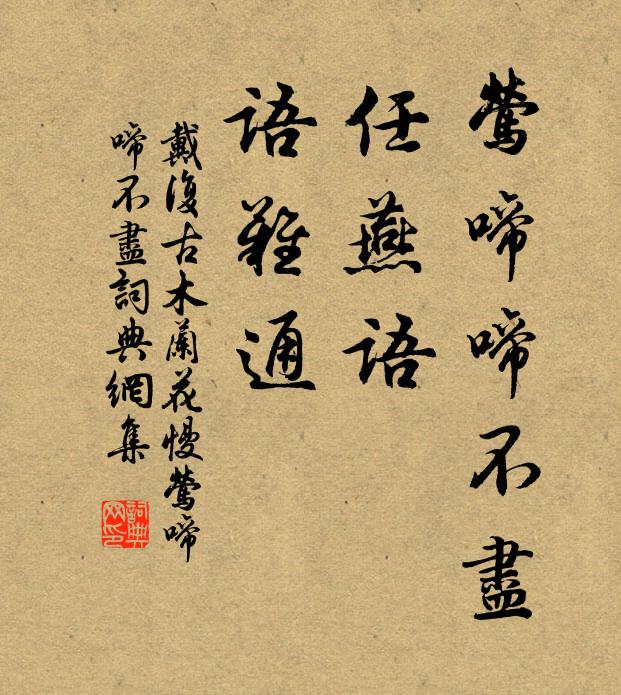 鶯啼啼不盡
任燕語
語難通
戴復古木蘭花慢鶯啼
啼不盡詞典網集
詞典
网印